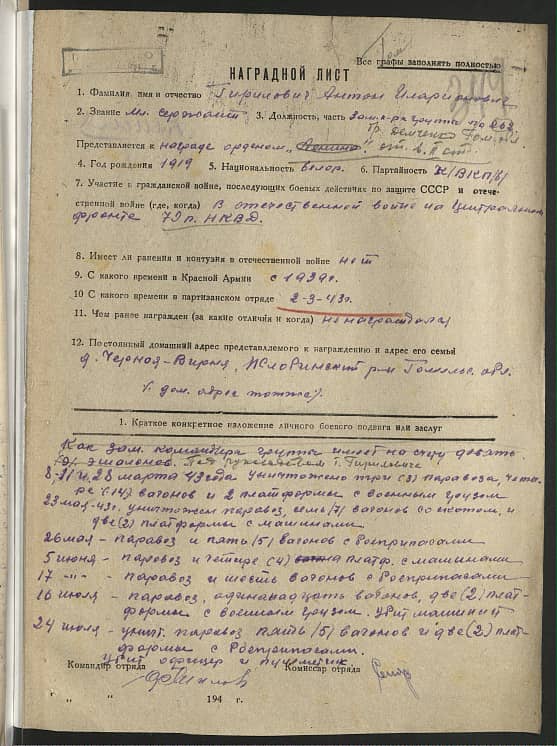 Все графы заполнять полностью
НАГРАДНОЙ ЛИСТ
1. Фамилия, имя и отчество Гирилович Антон Иларионович
2. Звание Мл. Сержант 3. Должность, часть Зам. к-ра группы
Представляется к награде орденом „Ленина"
4. Год рождения 1919 5. Национальность белор. 6. Партийность К/ВКП/б/
7. Участие в гражданской войне, последующих боевых действиях по защите СССР и отече-
ственной войне (где, когда) В отечественной войне на Центральном
фронте 79 п. НКВД.
8. Имеет ли ранения и контузия в отечественной войне нет
9. С какого времени в Красной Армии с 1939г.
10 С какого времени в партизанском отряде 2-3-43г.
11. Чем ранее награжден (за какие отличия и когда) не награждался
12. Постоянный домашний адрес представляемого к награждению и адрес его семьи
д. Черная-Вирня, Жлобинский р-н Гомельс. обл.
дом. адрес тотже).
1. Краткое конкретное изложение личного боевого подвига или заслуг
Как зам. командира группы имеет на счету девять
(9) эшалонов. Под руководством т. Гириловича
8-21 и 28 марта 43 года уничтожено три (3) паравоза, четы-
ре (14) вагонов и 2 платформы с военным грузом
23 мая-43г. уничтожен паравоз, семь /7/ вагонов со скотом, и
две (2) платформы с машинами
26 мая - паравоз и пять /5/ вагонов с боеприпасами
5 июня - паровоз и четыре (4) платф. с машинами
17 -"- - паравоз и шесть вагонов с боеприпасами
16 июля - паравоз, одинанадцать вагонов, две (2) плат-
формы с военным грузом. Убит машинист
24 июля - уничт. паравоз пять /5/ вагонов и две (2) плат-
формы с боеприпасами.
Убит офицер и пулеметчик.
Командир отряда Комиссар отряда
" " 194 г.